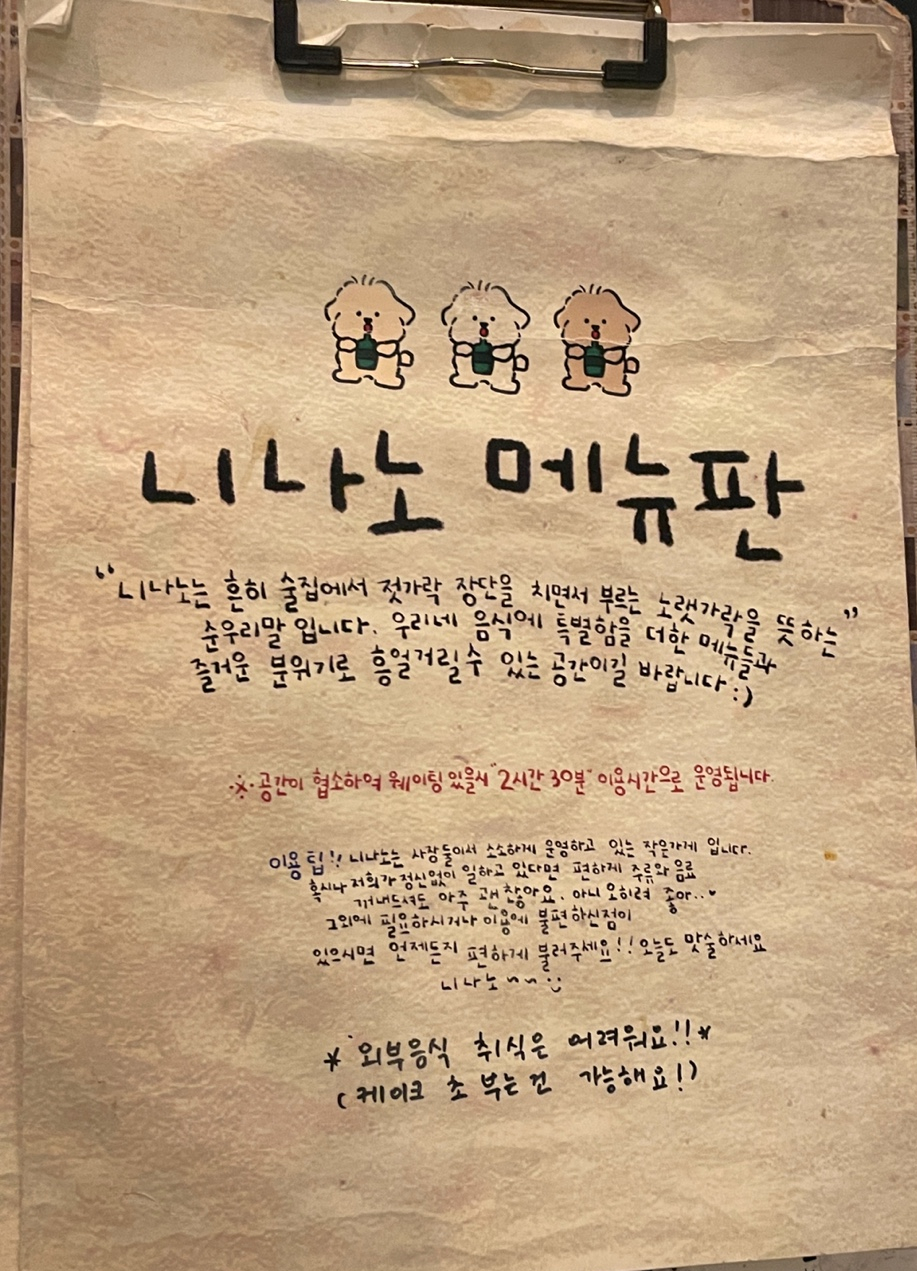 니나노 메뉴판
“니나노는 흔히 술집에서 젓가락 장단을 치면서 부르는 노랫가락을 뜻하는”
순우리말 입니다. 우리네 음식에 특별함을 더한 메뉴들과
즐거운 분위기로 흥얼거릴수 있는 공간이길 바랍니다 :)
※ 공간이 협소하여 웨이팅 있을시 "2시간 30분" 이용시간으로 운영됩니다.
이용 팁!! 니나노는 사장둘이서 소소하게 운영하고 있는 작은가게 입니다.
혹시나 저희가 정신없이 일하고 있다면 편하게 주류와 음료
꺼내드셔도 아주 괜찮아요. 아니 오히려 좋아..♥
그외에 필요하시거나 이용에 불편하신점이
있으시면 언제든지 편하게 불러주세요!! 오늘도 맛술하세요
니나노~~ :)
* 외부음식 취식은 어려워요!! *
(케이크 초 부는건 가능해요!)